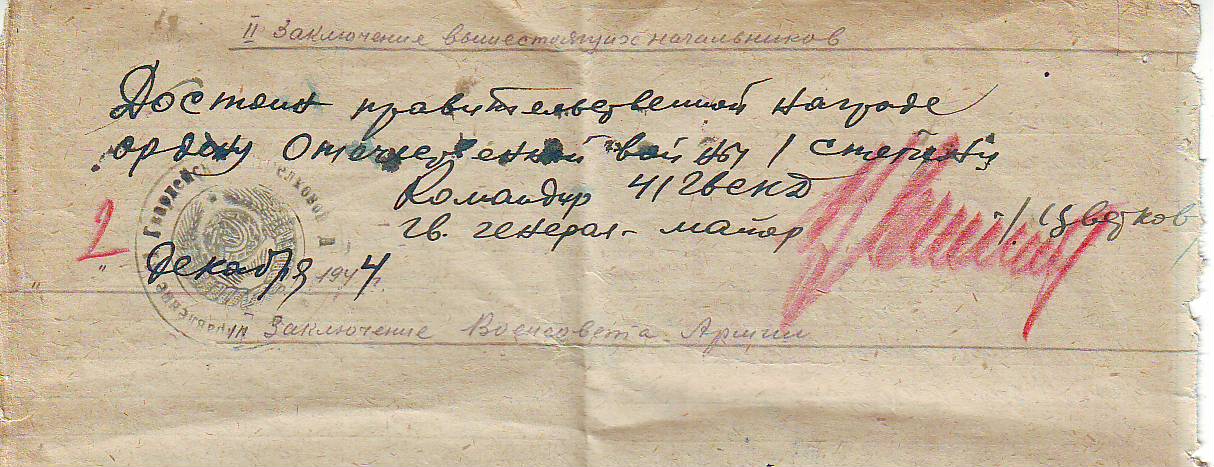 II Заключение вышестоящих начальников
Достоин правительственной награде
ордену Отечественной войны 1 степени
Командир 41 ГвСКД
гв. генерал-майор /. Цветков /
2
" Декабря 1944 г.
Управление Гвардейской
Заключение Военсовета Армии